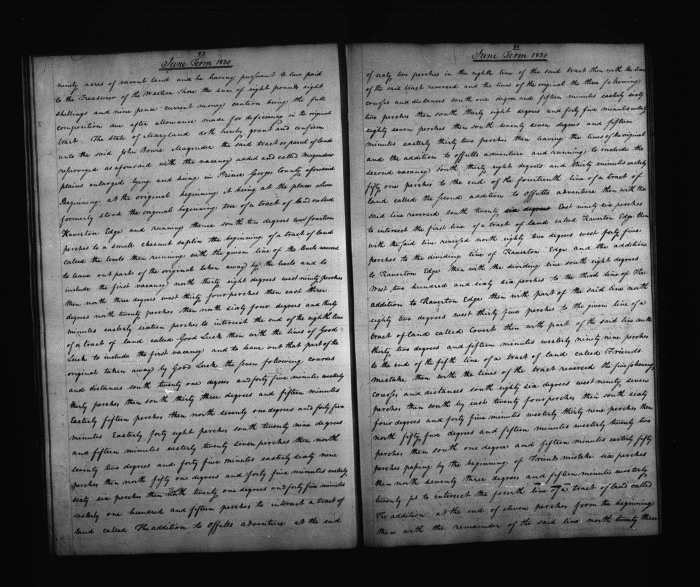 32
June Term 1820
ninety acres of vacant land and he having pursuant to law paid
to the Treasurer of the Western Shore the sum of eight pounds eight
shillings and nine pence current money caution being the full
composition due after allowance made for difference in the original
tract. The State of Maryland doth hereby grant and confirm
unto the said John Bowie Magruder the said tract or parcel of land
resurveyed as aforesaid with the vacancy added and called Magruders
plains enlarged lying and being in Prince Georges County aforesaid
Beginning at the original beginning it being at the place where
formerly stood the original beginning tree of a tract of land called
Haverton Edge and running thence south ten degrees west fourteen
perches to a small chesnut saplin the beginning of a tract of land
called the then running with the given line of the reversed
to leave out part of the original taken away by the and to
include the first vacancy north thirty eight degrees west ninety perches
then north three degrees west thirty four perches then east three
degrees north twenty perches then north sixty four degrees and thirty
minutes easterly sixteen perches to intersect the end of the eighth line
of a tract of land called Good Luck then with the lines of Good
Luck to include the first vacancy and to leave out that part of the
original taken away by Good Luck the five following courses
and distances south twenty one degrees and forty five minutes westerly
thirty perches then south thirty three degrees and fifteen minutes
Easterly fifteen perches then north seventy one degrees and forty five
minutes Easterly forty eight perches south twenty nine degrees
and fifteen minutes easterly twenty seven perches then north
seventy two degrees and forty five minutes easterly sixty nine
perches then north fifty one degrees and forty five minutes westerly
sixty six perches then twenty one degrees and forty five minutes
easterly one hundred and fifteen perches to intersect a tract of
land called The addition to Offutts adventure at the end
33
June Term 1820
of sixty two perches in the eighth line of the said tract then with the lines
of the said tract reversed and the lines of the original the three following
courses and distances south one degree and fifteen minutes easterly sixty
two perches then south thirty eight degrees and forty five minutes westerly
eighty seven perches then south seventy seven degrees and fifteen
minutes easterly thirty two perches then leaving the lines of the original
and the addition to offutts adventure and running to include the
second vacancy south thirty eight degrees and thirty minutes easterly
fifty one perches to the end of the fourteenth line of a tract of
land called the second addition to Offutts adventure then with the
said line reversed south twenty six degrees East ninety six perches
to intersect the first line of a tract of land called Haverton Edge then
with the said line reversed north eighty two degrees west forty five
perches to the dividing line of Haverton Edge and the addition
to Haverton Edge then with the dividing line south eight degrees
West two hundred and sixty six perches to the third line of the
addition to Haverton Edge then with part of the said line north
eighty two degrees west thirty five perches to the given line of a
tract of land called Covert then with part of the said line north
thirty two degrees and fifteen minutes westerly ninety nine perches
to the end of the fifth line of a tract of land called Friends
mistake then with the lines of the tract reversed the five following
courses and distances south eighty six degrees west ninety seven
perches then south by east twenty four perches then south sixty
four degrees and forty five minutes westerly thirty nine perches then
north fifty five degrees and fifteen minutes westerly twenty two
perches then south one degree and fifteen minutes easterly fifty
perches passing by the beginning of Friends mistake six perches
then north seventy three degrees and fifteen minutes westerly
twenty ps to intersect the fourth line of a tract of land called
The addition at the end of eleven perches from the beginning
then with the remainder of the said line north twenty three